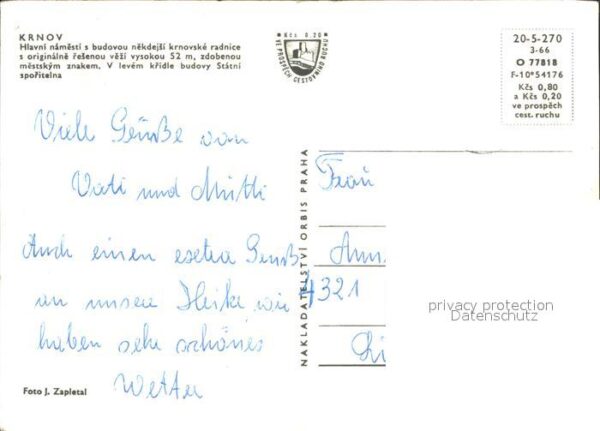 KRNOV
Hlavní náměstí s budovou někdejší krnovské radnice
s originálně řešenou věží vysokou 52 m, zdobenou
městským znakem. V levém křídle budovy Státní
spořitelna
Kčs 0,20
VE PROSPĚCH CESTOVNÍHO RUCHU
20-5-270
3-66
O 77818
F-10*54176
Kčs 0,80
a Kčs 0,20
ve prospěch
cest. ruchu
Viele Grüße von
Vati und Mutti
Auch einen extra Gruß
an unsere Heike wir
haben sehr schönes
Wetter
NAKLADATELSTVÍ ORBIS PRAHA
Frau
4321
privacy protection
Datenschutz
Foto J. Zapletal